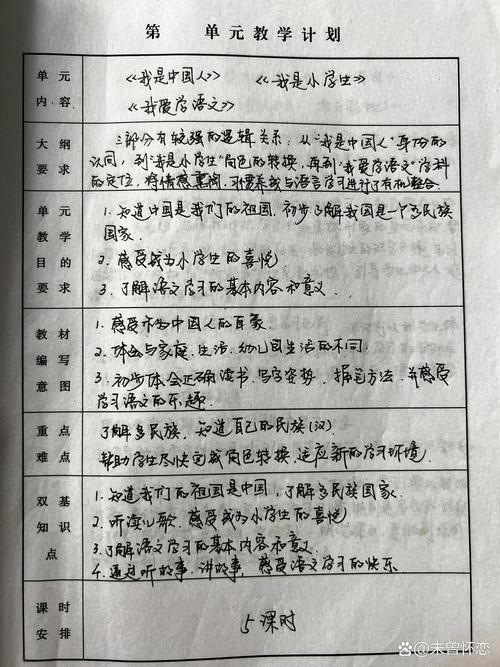 第 单元教学计划
单元
内容
《我是中国人》 《我是小学生》
《我爱学语文》
大纲
要求
三部分有较强的逻辑关系：从“我是中国人”身份的
认同，到“我是小学生”角色的转换，再到“我爱学语文”学科
的定位，将情感熏陶、习惯养成与语言学习进行了有机整合。
单元
教学
目的
要求
1. 知道中国是我们的祖国，初步了解我国是一个多民族
国家。
2. 感受成为小学生的喜悦
3. 了解语文学习的基本内容和意义
教材
编写
意图
1. 感受作为中国人的自豪
2. 体会与家庭、生活、幼儿园生活的不同
3. 初步体会正确读书、写字姿势、握笔方法，并感受
学习语文的乐趣
重点
难点
了解多民族，知道自己的民族（汉）
帮助学生尽快完成角色转换，适应新的学习环境
双基
知识
点
1. 知道我们的祖国是中国，了解多民族国家。
2. 听读儿歌，感受成为小学生的喜悦
3. 了解语文学习的基本内容和意义
4. 通过听故事、讲故事，感受语文学习的快乐
课时
安排
5课时
未曾怀恋